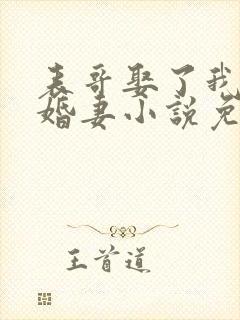 表哥娶了我
婚妻小説免
王首道